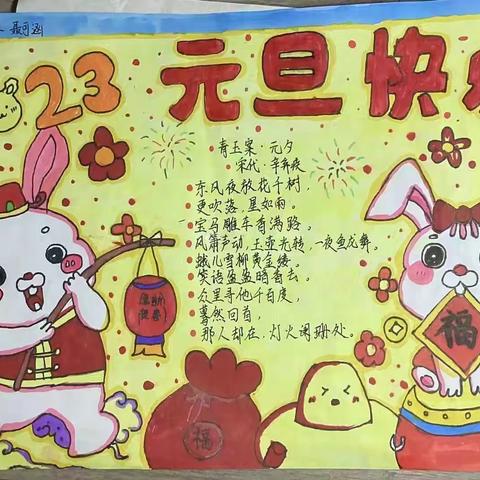 23 元旦快
青玉案·元夕
宋代·辛弃疾
东风夜放花千树，
更吹落，星如雨。
宝马雕车香满路。
风箫声动，玉壶光转，一夜鱼龙舞。
蛾儿雪柳黄金缕。
笑语盈盈暗香去。
众里寻他千百度，
蓦然回首，
那人却在，灯火阑珊处。
福
福